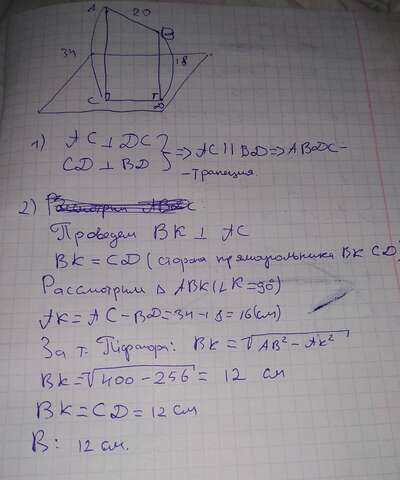 A
20
B
34
18
C
D
1) AC ⊥ DC
CD ⊥ BD } ⇒ AC || BD ⇒ ABDC –
– трапеция.
2)
Проведем BK ⊥ AC
BK = CD (сторона прямоугольника BKCD)
Рассмотрим Δ ABK (∠K = 90°)
AK = AC – BD = 34 – 18 = 16 (см)
За т. Піфагора: BK = √AB² – AK²
BK = √400 – 256 = 12 см
BK = CD = 12 см
В: 12 см.